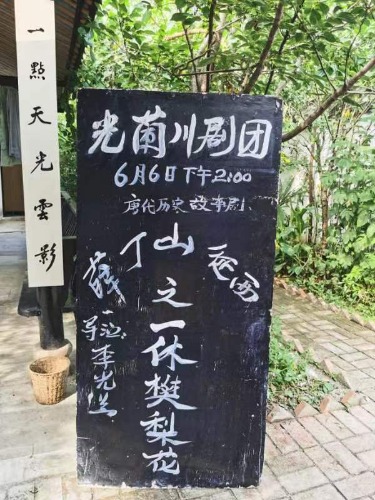 一點天光雲影
光南川剧团
6月6日下午2:00
唐代历史故事剧
薛丁山之一休樊梨花